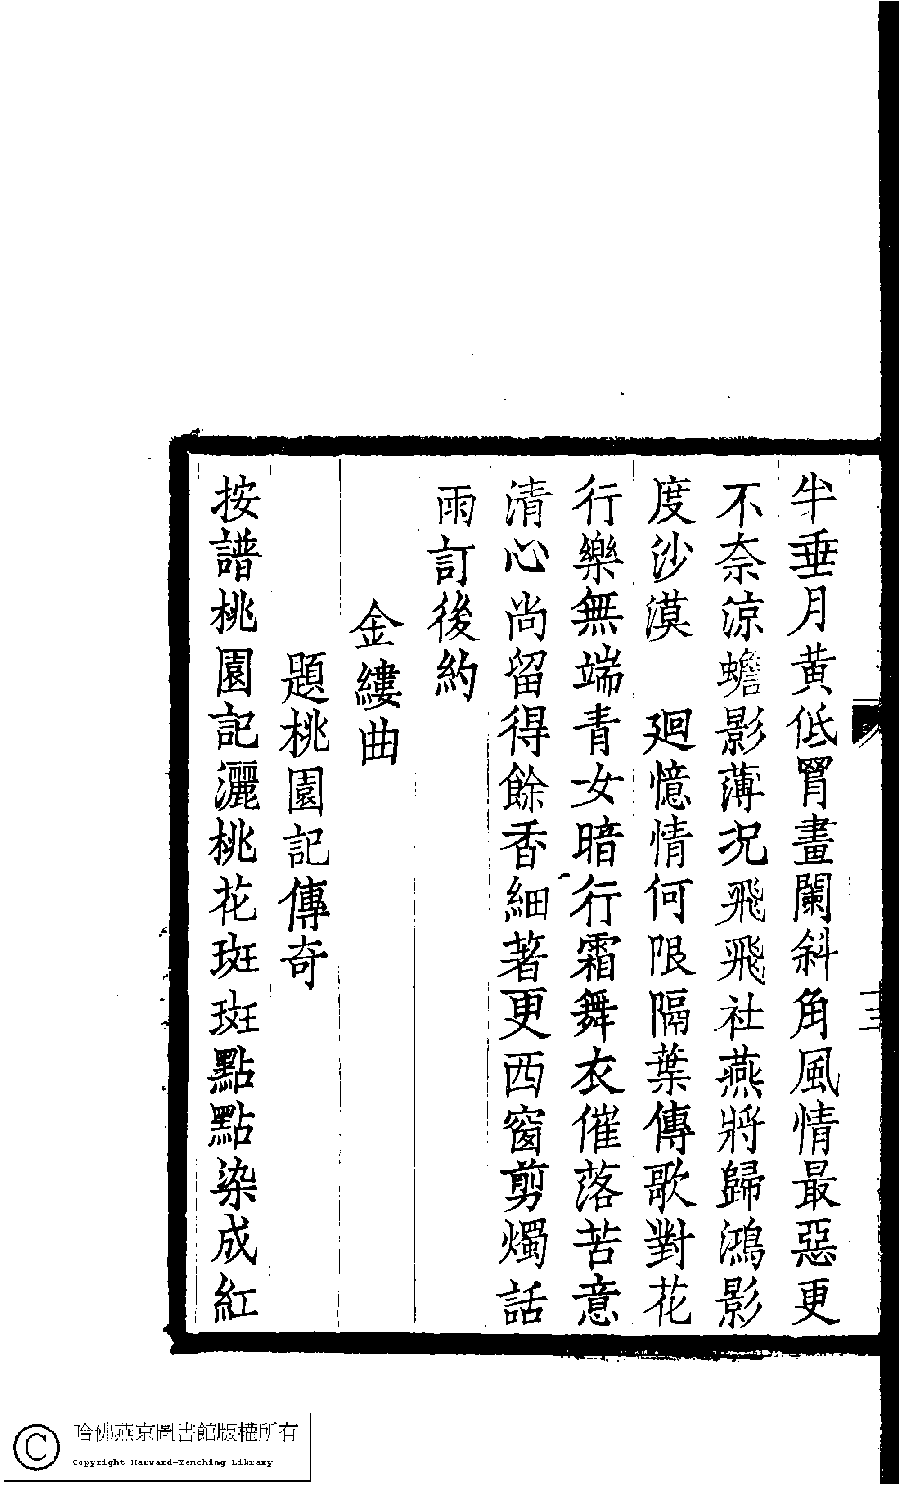 半垂月黄低罥畫闌斜角風情最惡更
不奈涼蟾影薄况飛飛社燕將歸鴻影
度沙漠　廻憶情何限隔葉傳歌對花
行樂無端青女暗行霜舞衣催落苦意
清心尚留得餘香細著更西窗剪燭話
雨訂後約
金縷曲
題桃園記傳奇
按譜桃園記灑桃花斑斑點點染成紅
十三
哈佛燕京圖書館版權所有
Copyright Harvard-Yenching Library